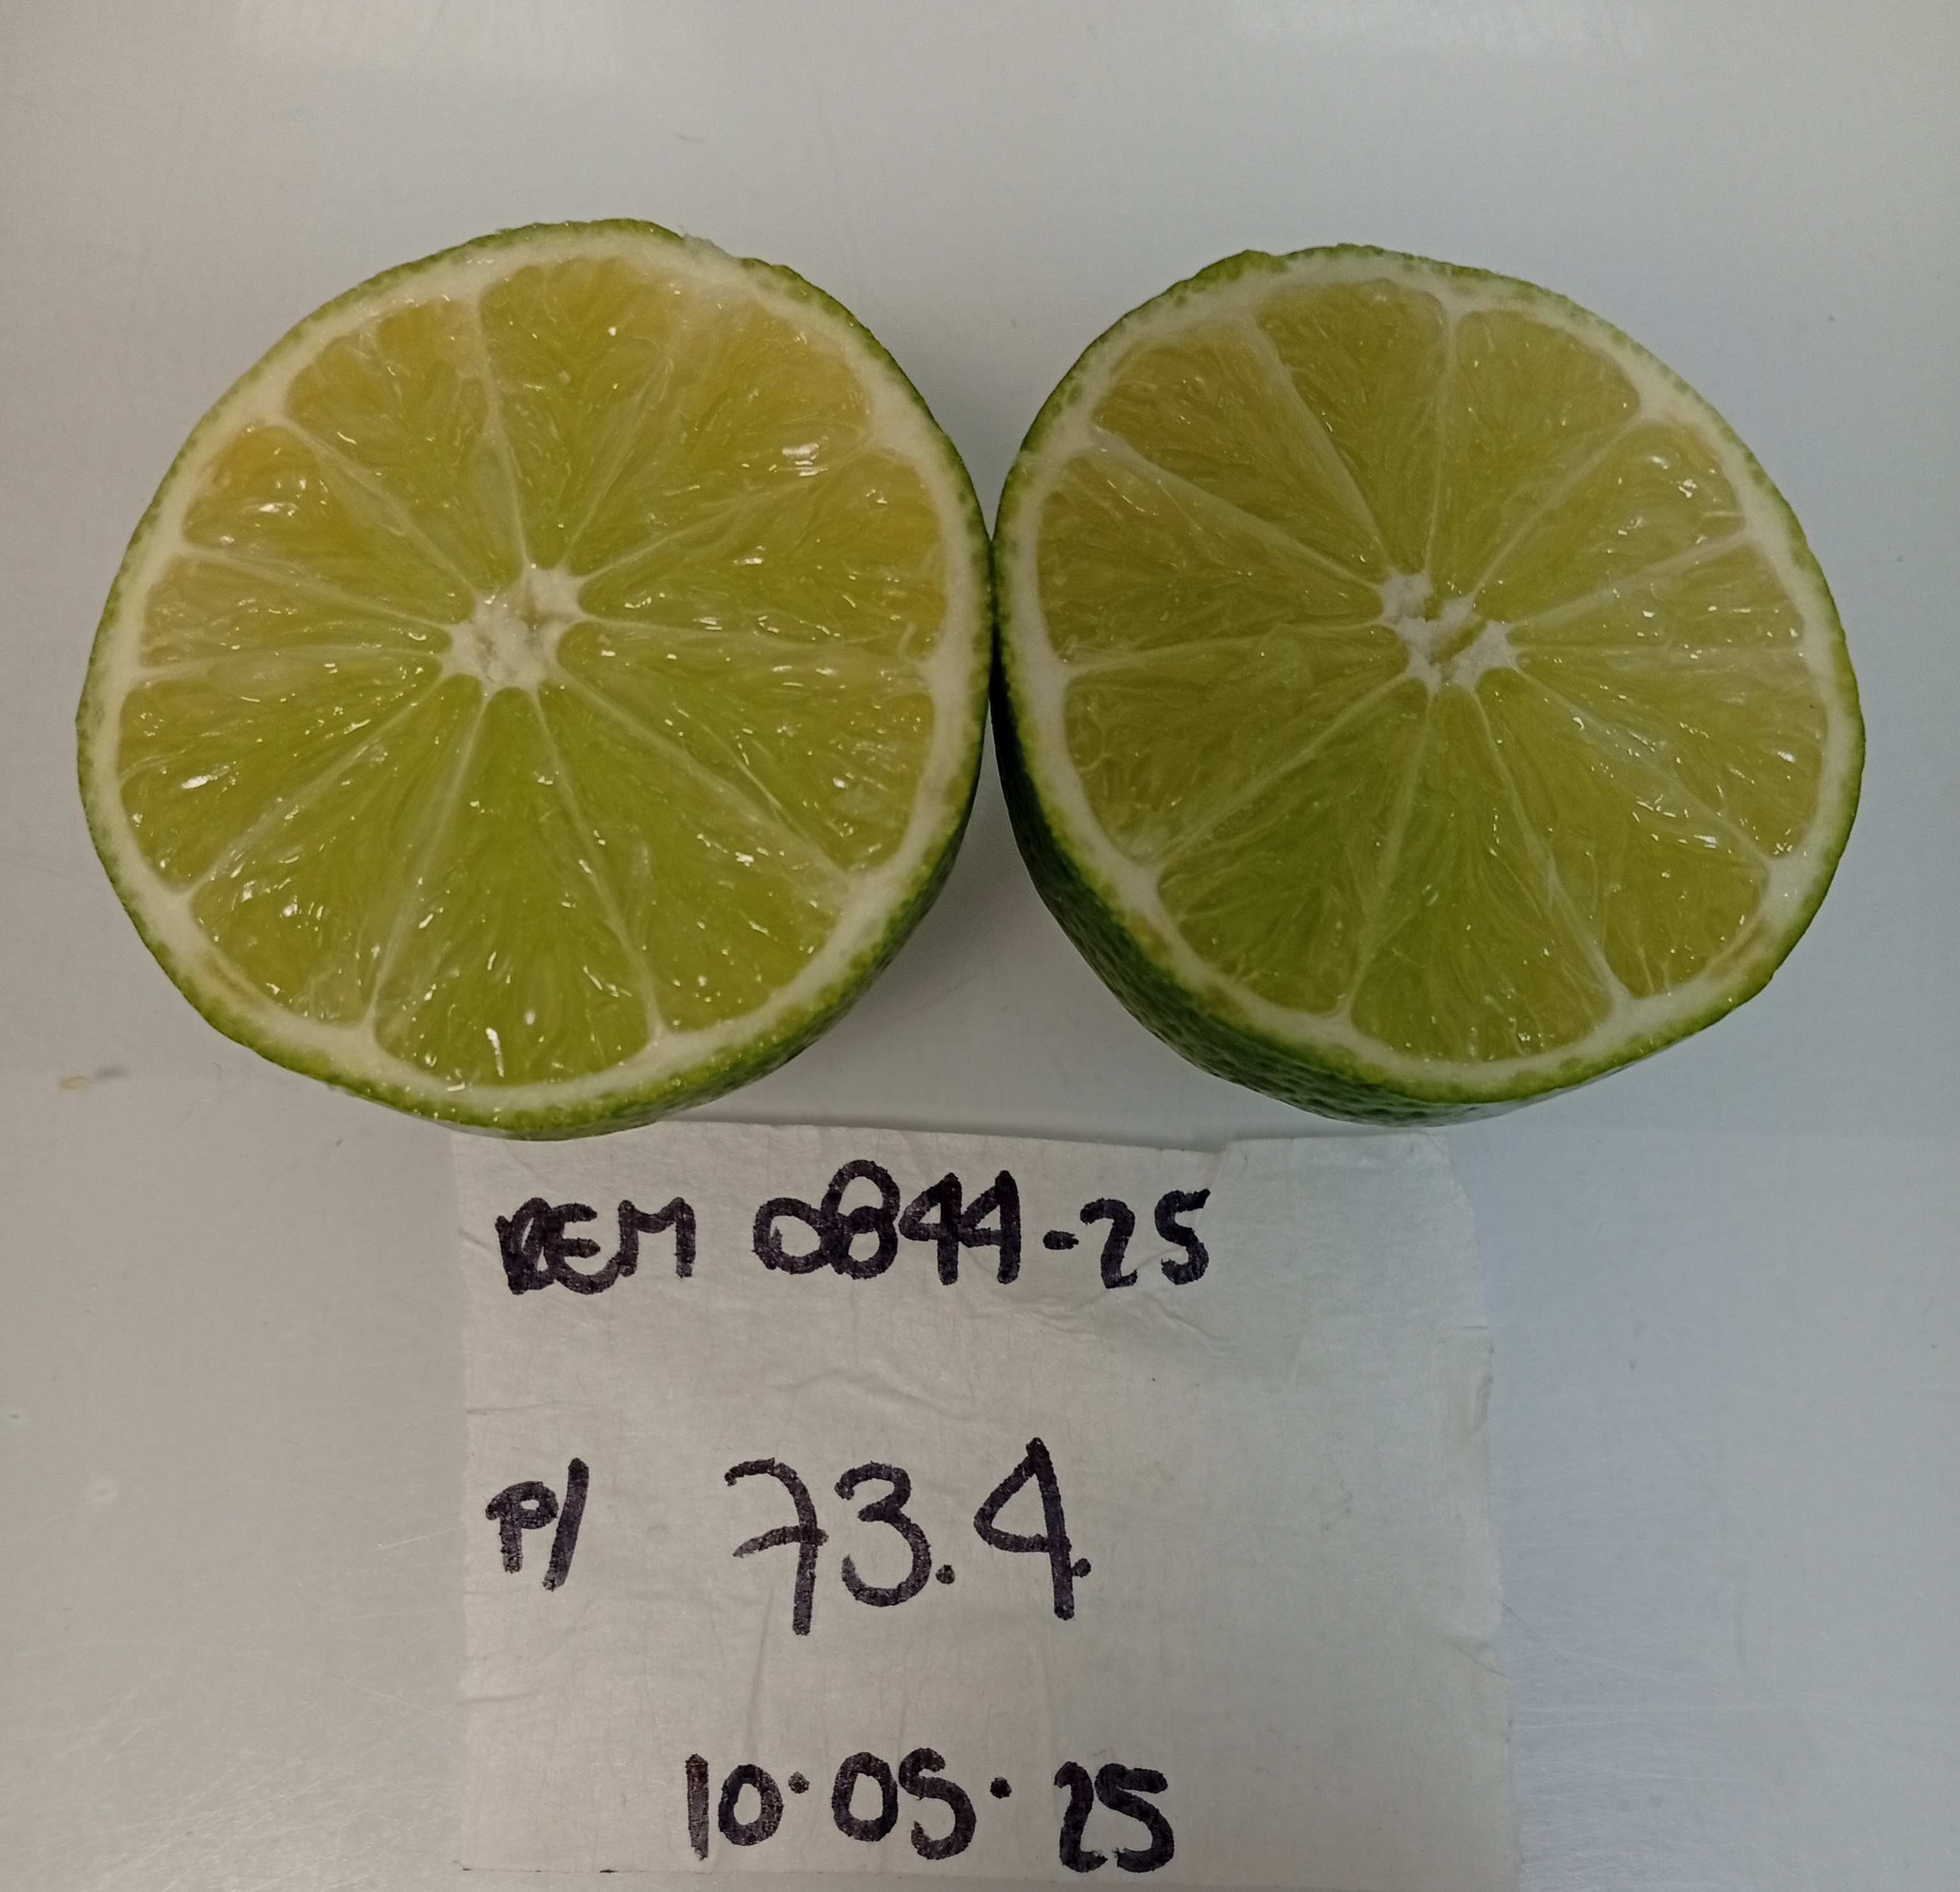 REM 0844-25
P/ 73.4
10.05.25